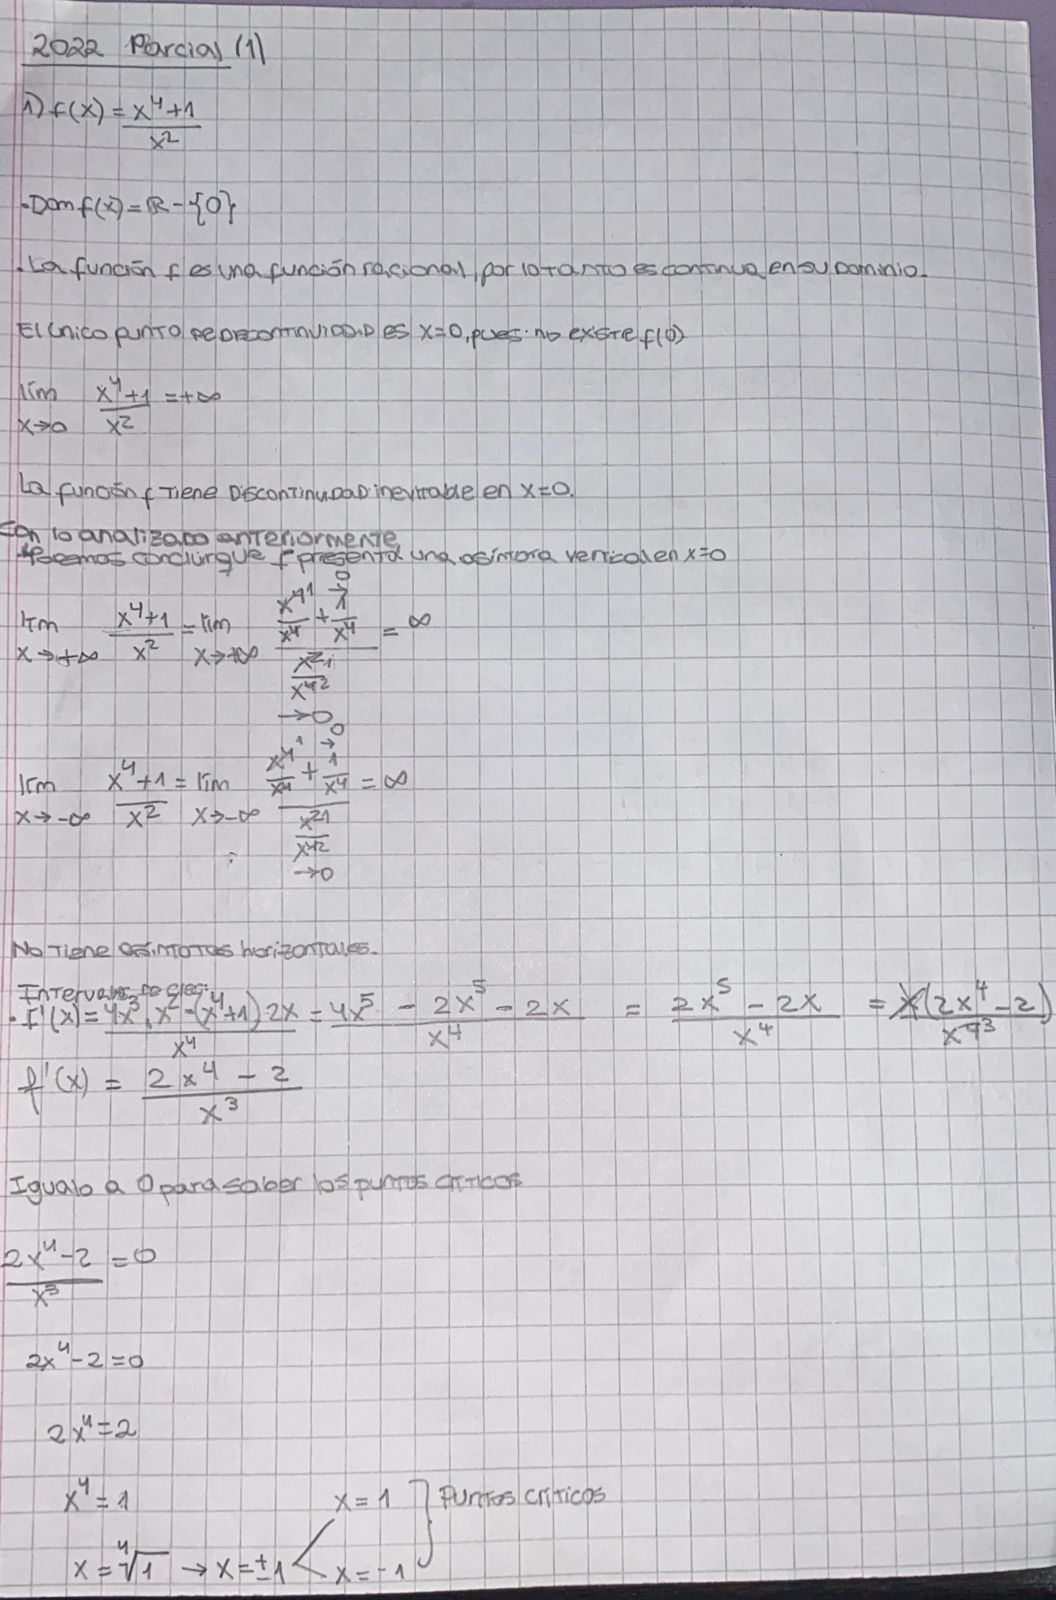 2022 Parcial (1)
1) f(x) = x⁴+1
x²
• Dom f(x) = ℝ - {0}
• La función f es una función racional, por lo tanto es continua en su dominio.
El único punto de discontinuidad es x=0, pues no existe f(0)
lím x⁴+1 = +∞
x→0 x²
La función f tiene discontinuidad inevitable en x=0.
Con lo analizado anteriormente
podemos concluir que f presenta una asíntota vertical en x=0
→0
lím x⁴+1 = lím x⁴/x⁴ 1 + 1/x⁴ = ∞
x→+∞ x² x→+∞ x²/x⁴ 1 2
→0
→0
lím x⁴+1 = lím x⁴/x⁴ 1 + 1/x⁴ = ∞
x→-∞ x² x→-∞ x²/x⁴ 1 2
→0
No tiene asíntotas horizontales.
Intervalos de
• f'(x) = 4x³ . x² - (x⁴+1) 2x = 4x⁵ - 2x⁵ - 2x = 2x⁵ - 2x = x(2x⁴-2)
x⁴ x⁴ x⁴ x⁴ 3
f'(x) = 2x⁴ - 2
x³
Igualo a 0 para saber los puntos críticos
2x⁴-2 = 0
x³
2x⁴-2=0
2x⁴=2
x⁴=1 x=1 } Puntos críticos
x = ⁴√1 → x=±1 < x=-1